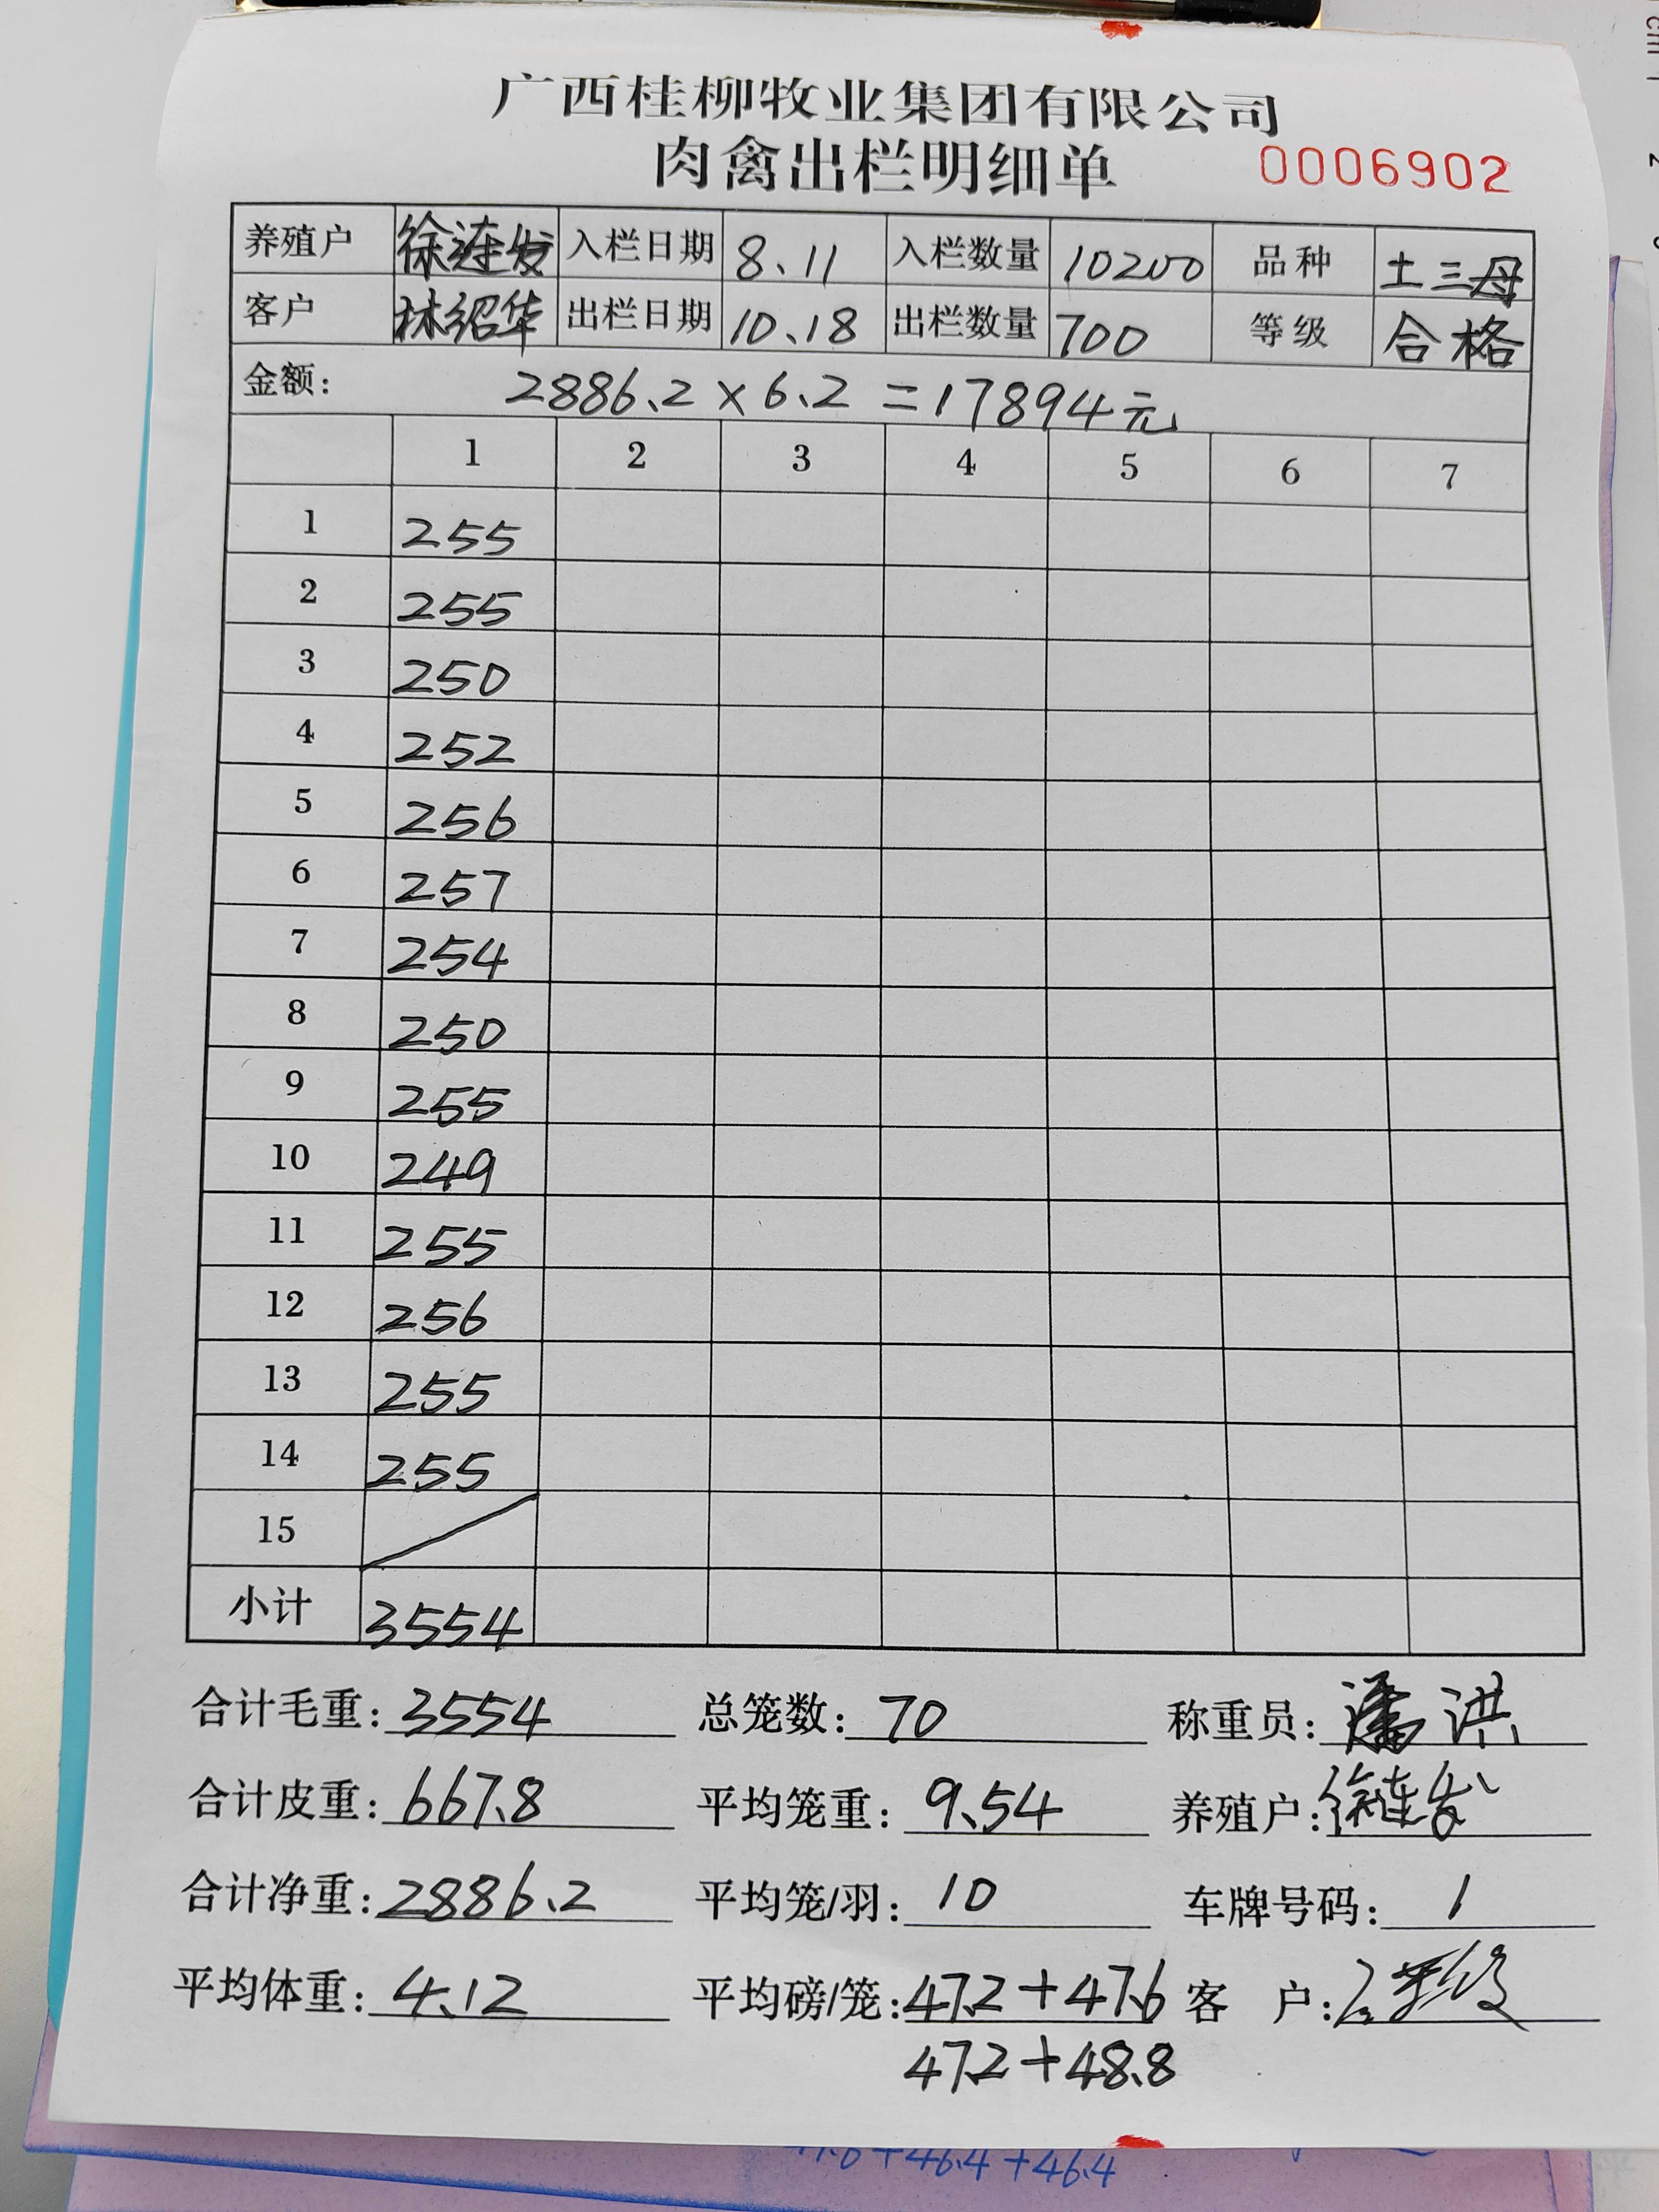 广西桂柳牧业集团有限公司
肉禽出栏明细单 0006902
养殖户 徐连发 入栏日期 8、11 入栏数量 10200 品种 土三母
客户 林绍华 出栏日期 10、18 出栏数量 700 等级 合格
金额: 2886.2×6.2=17894元
1 2 3 4 5 6 7
1 255
2 255
3 250
4 252
5 256
6 257
7 254
8 250
9 255
10 249
11 255
12 256
13 255
14 255
15
小计 3554
合计毛重: 3554 总笼数: 70 称重员: 潘洪
合计皮重: 667.8 平均笼重: 9.54 养殖户: 徐连发
合计净重: 2886.2 平均笼/羽: 10 车牌号码: 1
平均体重: 4.12 平均磅/笼: 47.2+47.6 客户:
47.2+48.8
+46.4+46.4